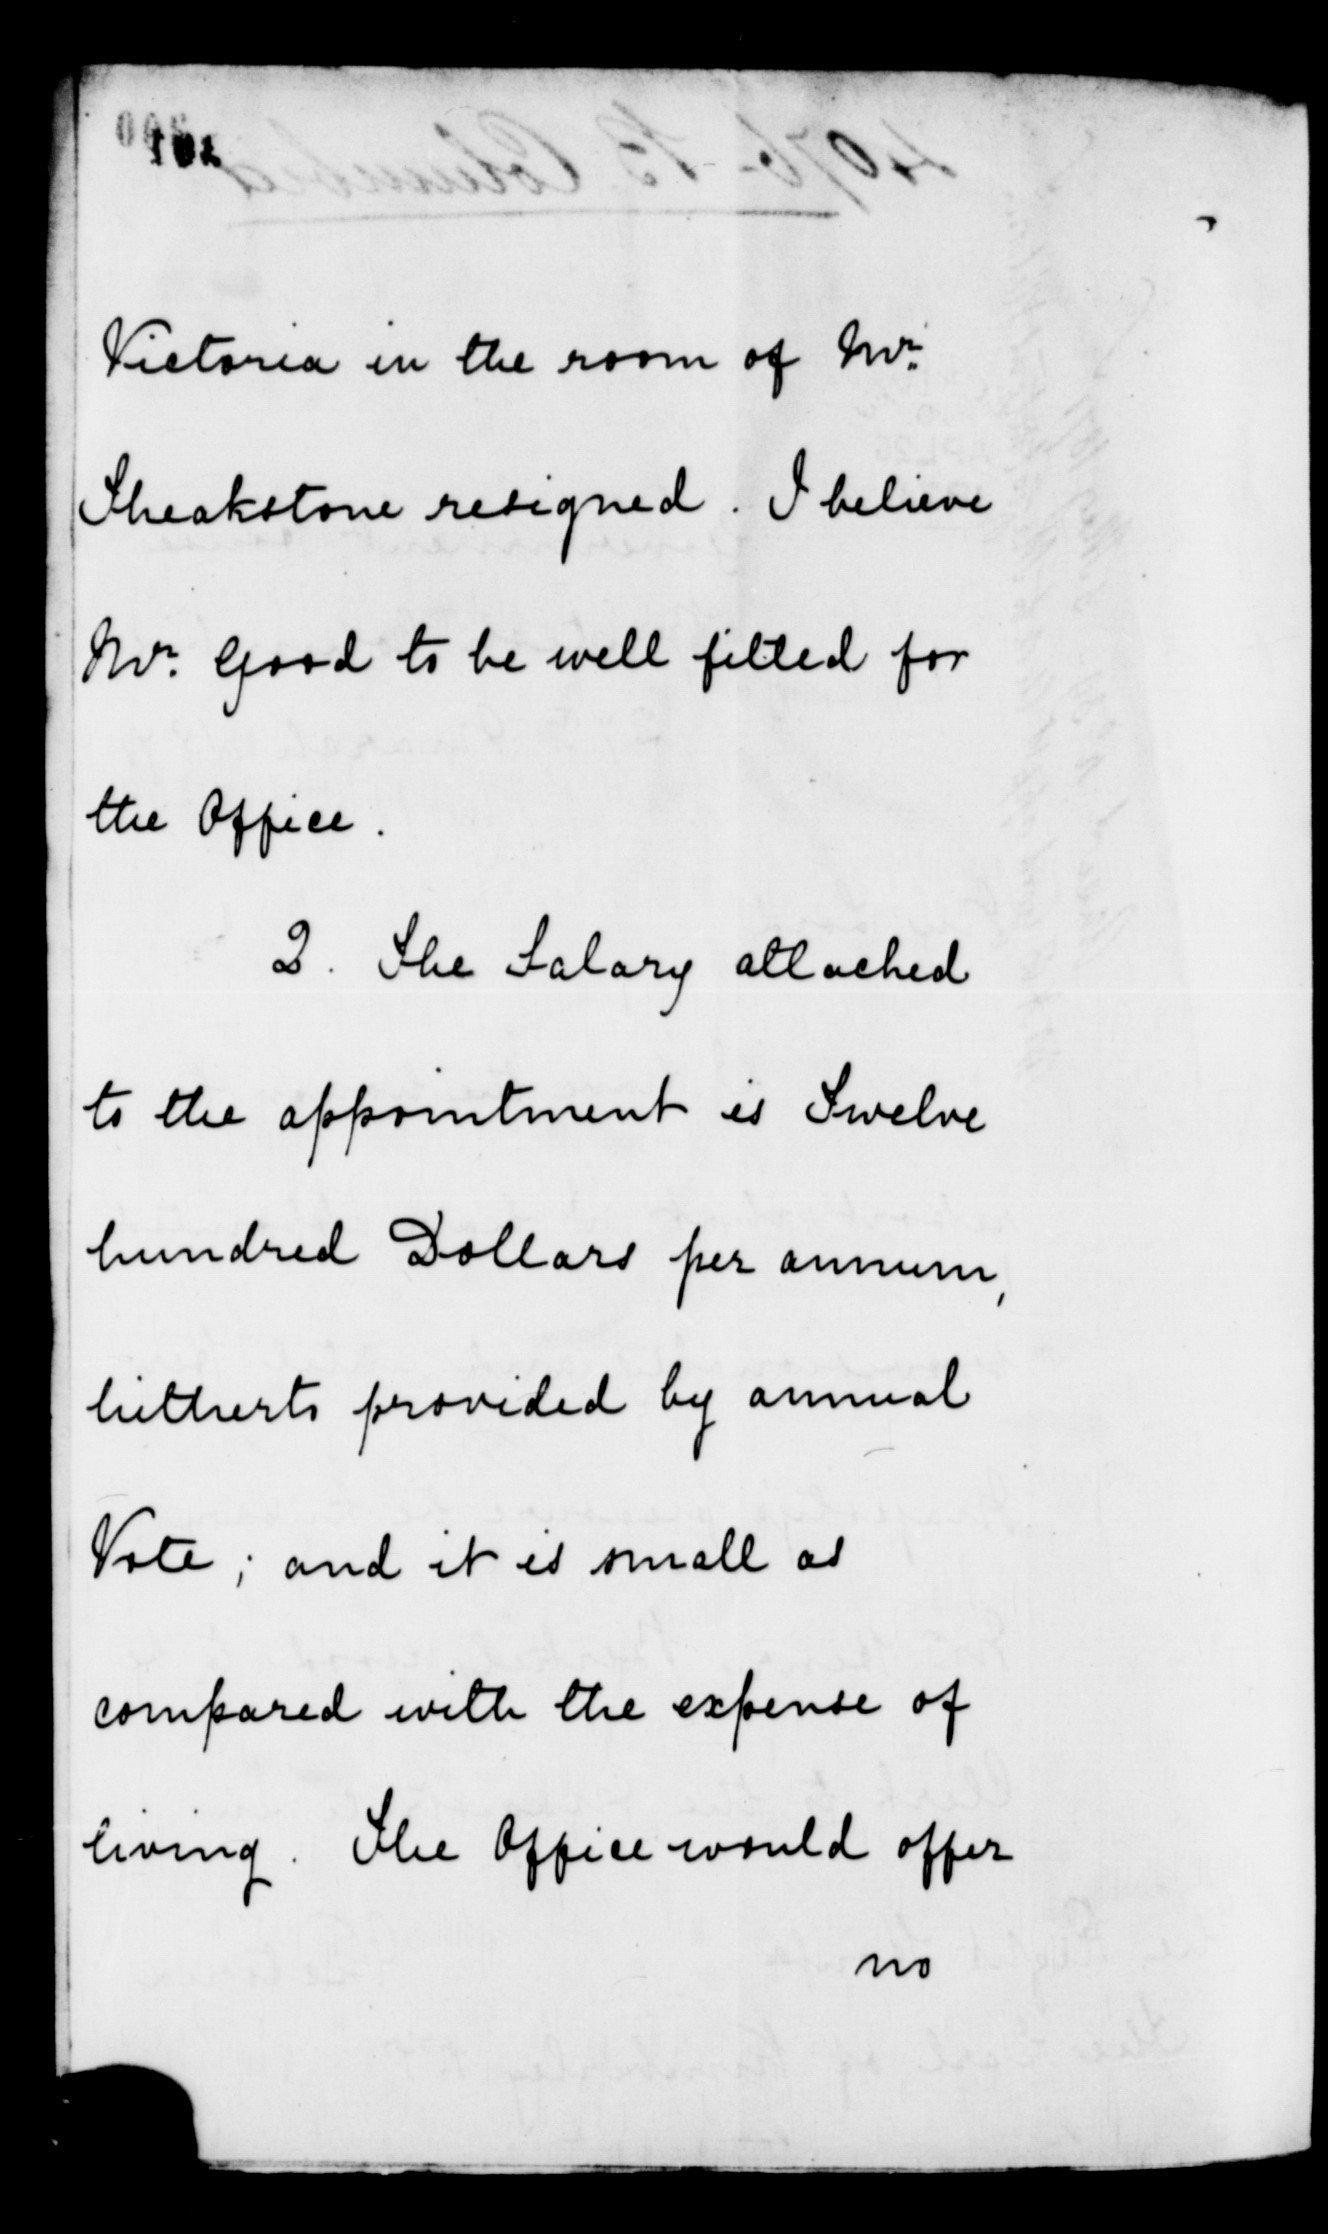 Victoria in the room of Mr.
Sheakstone resigned. I believe
Mr. Good to be well fitted for
the Office.
2. The Salary attached
to the appointment is Twelve
hundred Dollars per annum,
hitherto provided by annual
Vote; and it is small as
compared with the expense of
living. The Office would offer
no